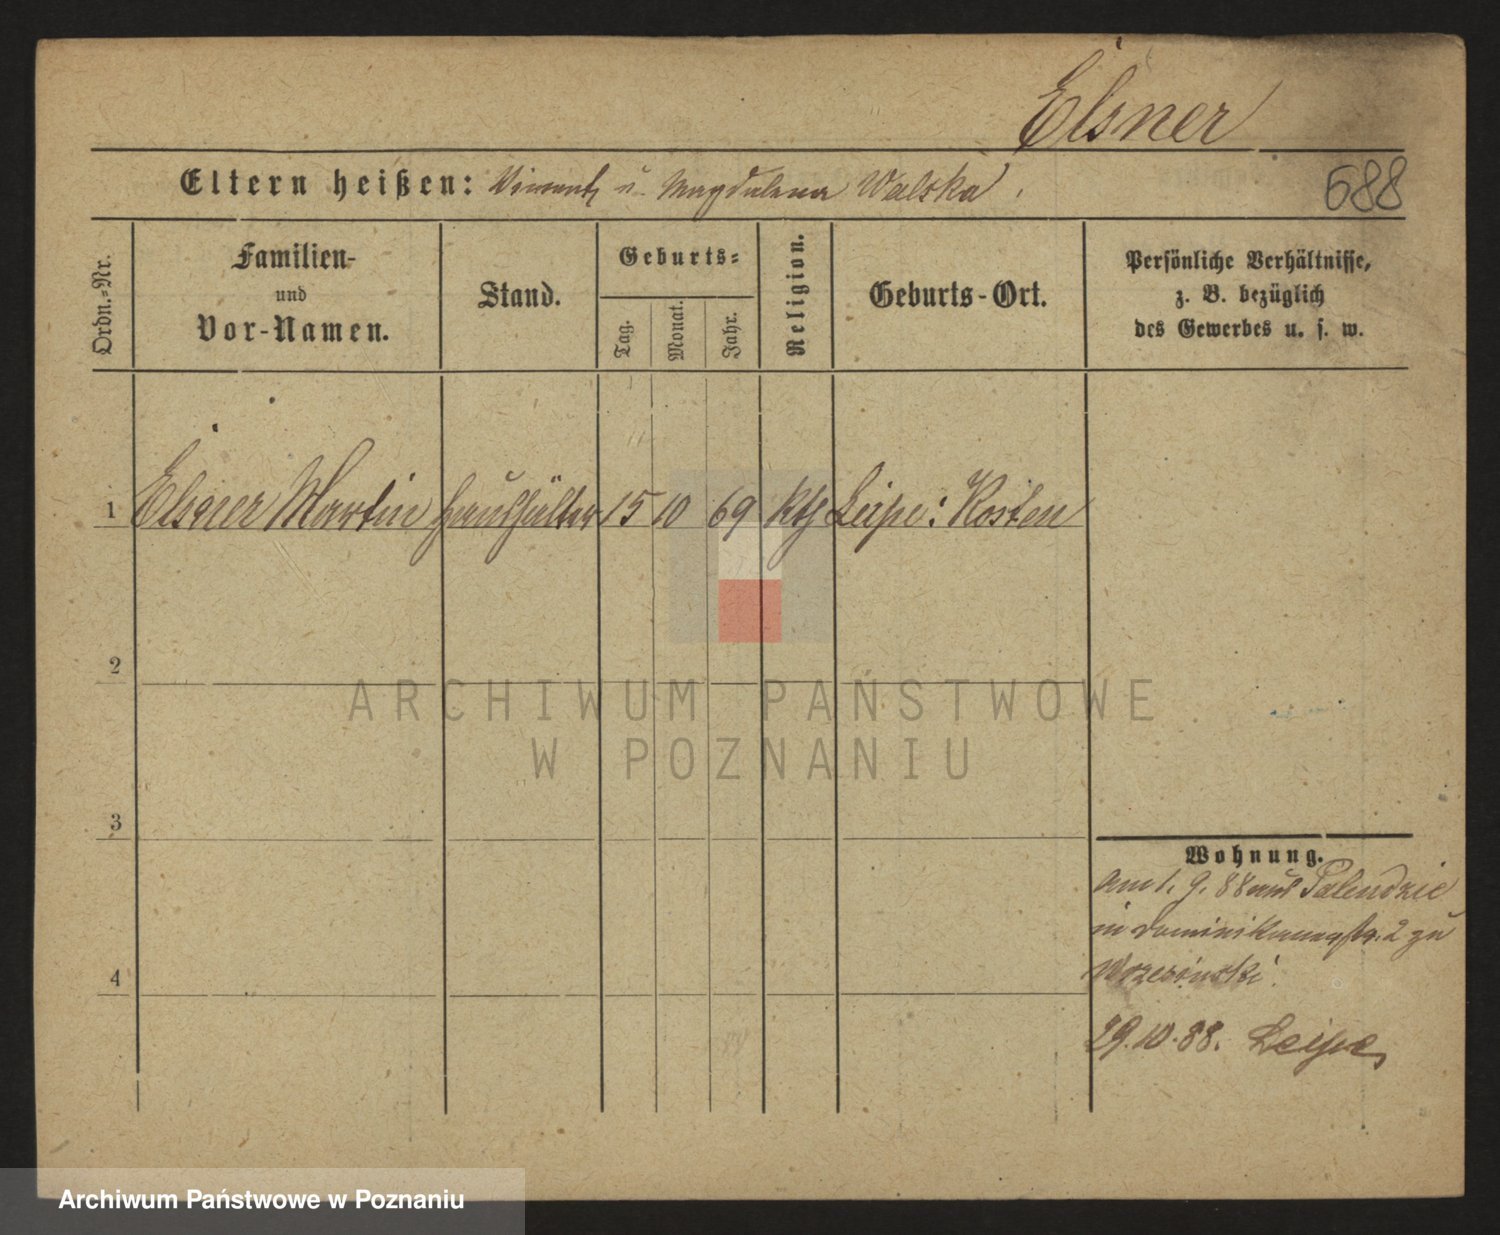 Elsner
Eltern heißen: Vincentz u. Magdalena Walska.
688
Ordn.-Nr.
Familien-
und
Vor-Namen.
Stand.
Geburts-
Tag.
Monat.
Jahr.
Religion.
Geburts-Ort.
Persönliche Verhältnisse,
z. B. bezüglich
des Gewerbes u. s. w.
1 Elsner Martin Haushälter 15 10 69 kth Leipe: Kosten
2
3
4
Wohnung.
am 1. 9. 88 aus Palendzie
in Dominikanerstr. 2 zu
Wrzesinski.
29.10.88. Leipe,
ARCHIWUM PAŃSTWOWE
W POZNANIU
Archiwum Państwowe w Poznaniu